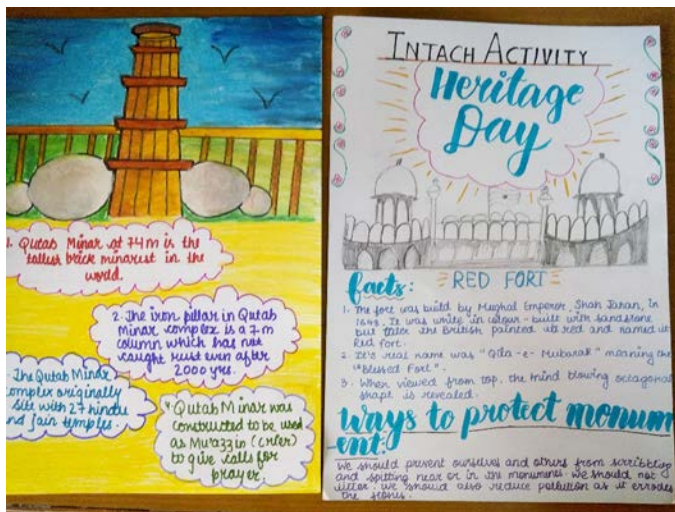 1. Qutab Minar at 74m is the
tallest brick minarest in the
world.
2. The iron pillar in Qutab
Minar complex is a 7m
column which has not
caught rust even after
2000 yrs.
The Qutab Minar
complex originally
site with 27 hindu
and Jain temples.
4 Qutab Minar was
constructed to be used
as Mu'azzin (crier)
to give calls for
prayer.
INTACH ACTIVITY
Heritage
Day
RED FORT
facts:
1. The fort was build by Mughal Emperor, Shah Jahan, in
1648. It was white in colour - built with sandstone
but later the British painted its red and named it
Red Fort.
2. It's real name was "Qila-e-Mubarak" meaning the
"Blessed Fort".
3. When viewed from top, the mind blowing octagonal
shape is revealed.
Ways to protect monum
-ent:
We should prevent ourselves and others from scribbling
and spitting near or in the monuments. We should not
litter. We should also reduce pollution as it errodes
the stones.